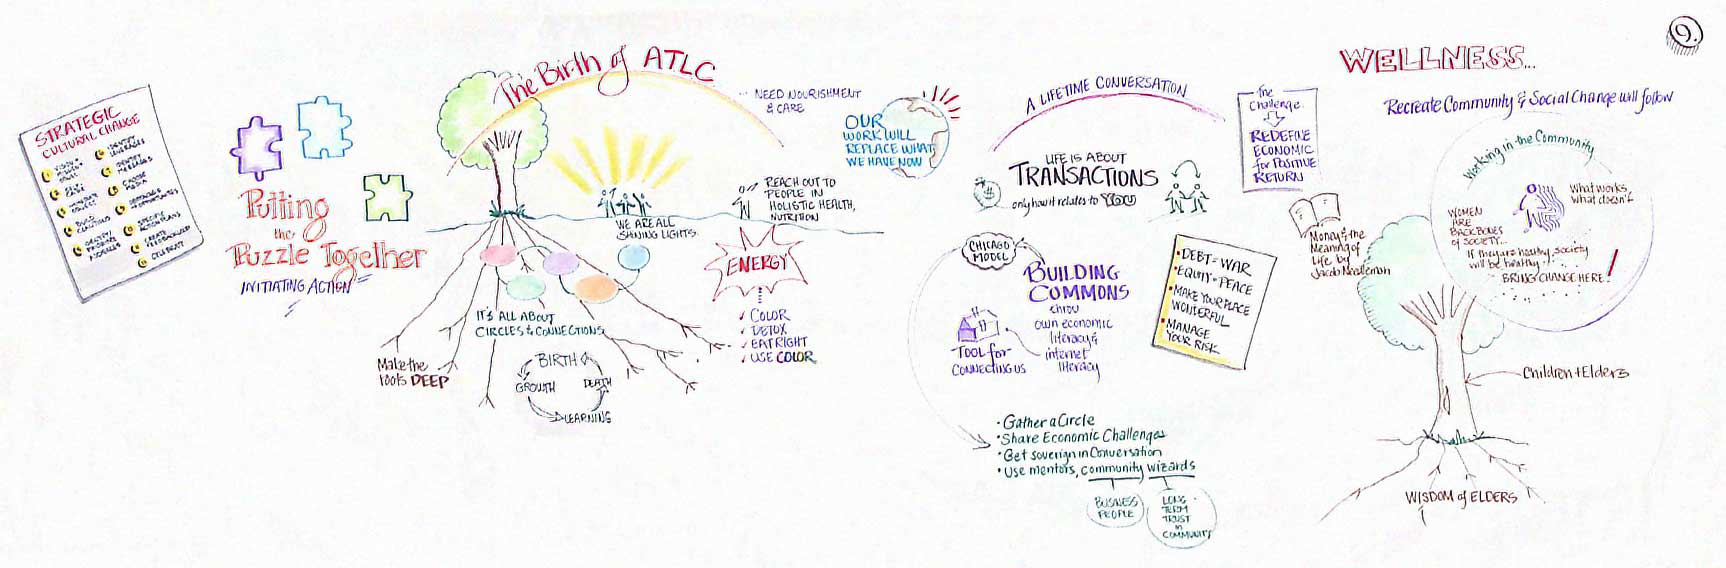 9.
STRATEGIC
CULTURAL CHANGE
IDENTIFY
BUILD
IDENTIFY
CREATE
CELEBRATE
Putting
the
Puzzle Together
INITIATING ACTION
The Birth of ATLC
... NEED NOURISHMENT
& CARE
WE ARE ALL
SHINING LIGHTS.
REACH OUT TO
PEOPLE IN
HOLISTIC HEALTH,
NUTRITION
ENERGY
COLOR
DETOX
EAT RIGHT
USE COLOR
IT'S ALL ABOUT
CIRCLES & CONNECTIONS
Make the
roots DEEP
BIRTH
GROWTH
DEATH
LEARNING
OUR
WORK WILL
REPLACE WHAT
WE HAVE NOW
A LIFETIME CONVERSATION
LIFE IS ABOUT
TRANSACTIONS
only how it relates to YOU
$
CHICAGO
MODEL
BUILDING
COMMONS
thru
own economic
literacy &
internet
literacy
TOOL for
CONNECTING US
• Gather a Circle
• Share Economic Challenges
• Get soverign in Conversation
• Use mentors, community wizards
BUSINESS
PEOPLE
LONG
TERM
TRUST
in
COMMUNITY
The
Challenge
REDEFINE
ECONOMIC
for POSITIVE
RETURN
• DEBT = WAR
• EQUITY = PEACE
• MAKE YOUR PLACE
WONDERFUL
• MANAGE
YOUR RISK
Money & the
Meaning of
Life by
Jacob Needleman
WELLNESS...
Recreate Community & Social Change will follow
Working in the Community
What works,
what doesn't
WOMEN
ARE
BACKBONES
OF SOCIETY...
If they are healthy, society
will be healthy.
BRING CHANGE HERE!
Children + Elders
WISDOM of ELDERS